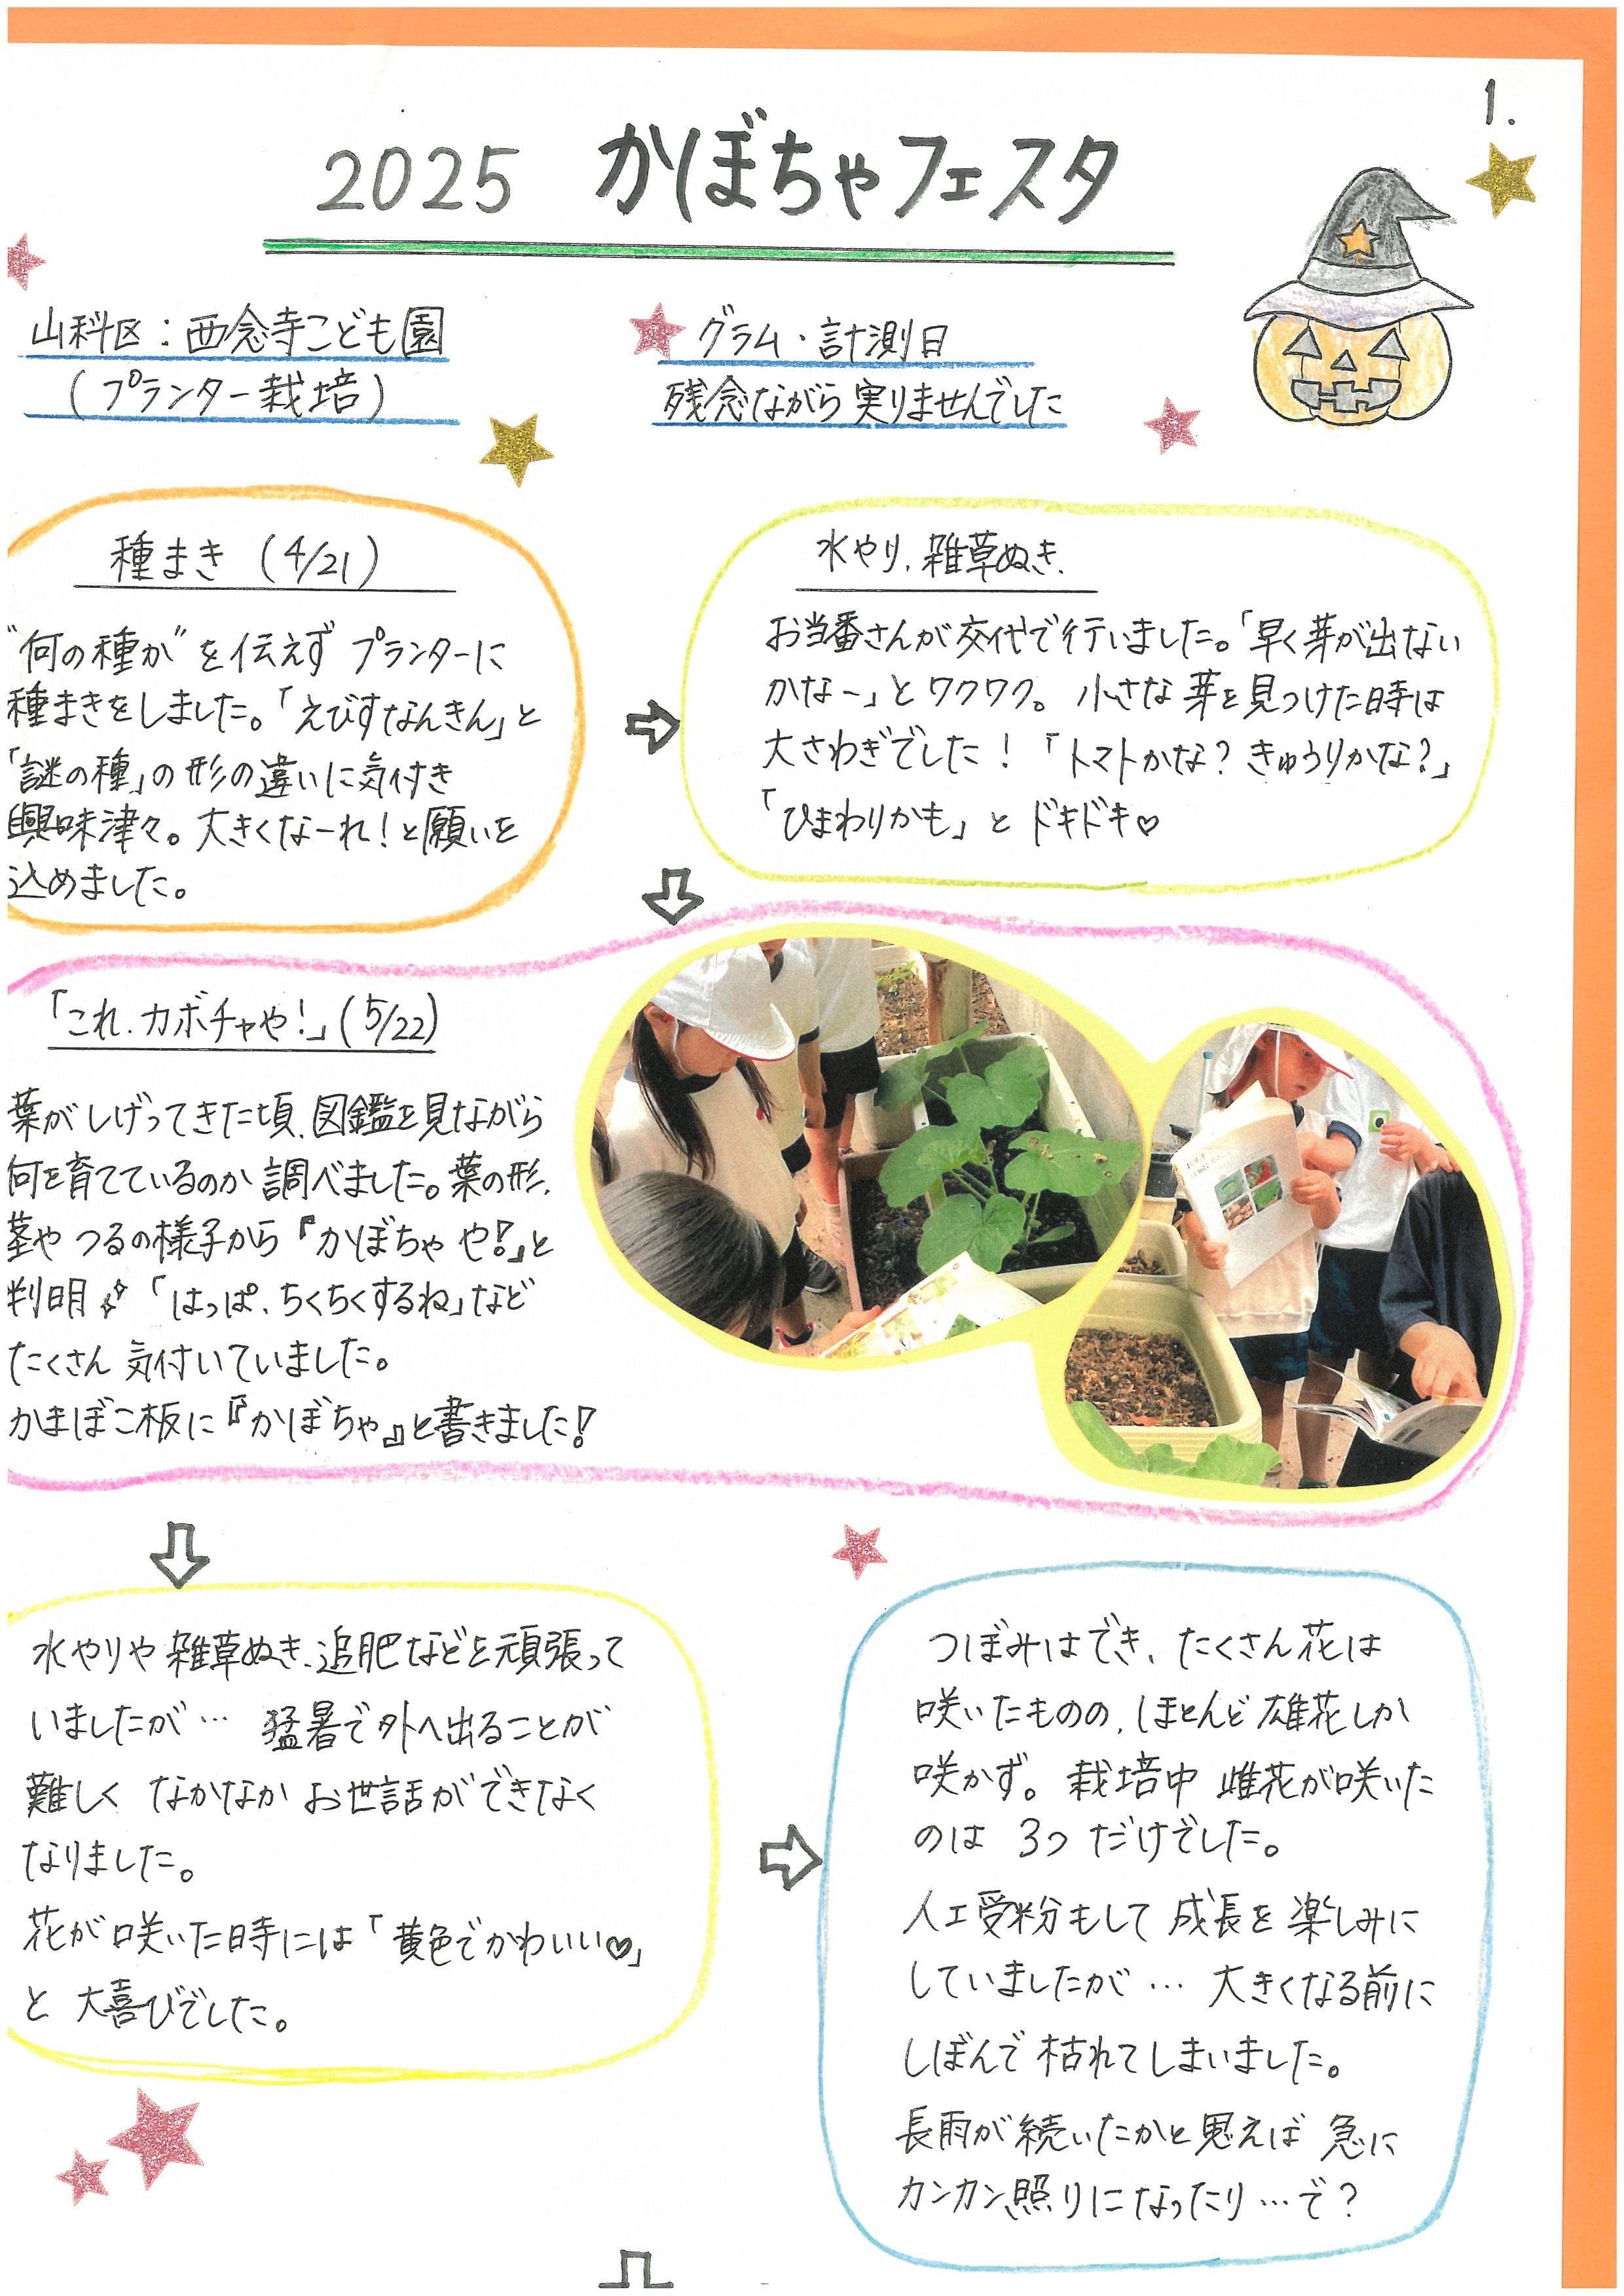 1.
2025 かぼちゃフェスタ
山科区：西念寺こども園
（プランター栽培）
グラム・計測日
残念ながら実りませんでした
種まき（4/21）
"何の種か"を伝えず プランターに
種まきをしました。「えびすなんきん」と
「謎の種」の形の違いに気付き
興味津々。大きくなーれ！と願いを
込めました。
水やり、雑草ぬき、
お当番さんが交代で行いました。「早く芽が出ない
かなー」とワクワク。小さな芽を見つけた時は
大さわぎでした！「トマトかな？きゅうりかな？」
「ひまわりかも」と ドキドキ♡
「これ、カボチャや！」（5/22）
葉がしげってきた頃、図鑑を見ながら
何を育てているのか調べました。葉の形、
茎や つるの様子から『かぼちゃ や！』と
判明 「はっぱ、ちくちくするね」など
たくさん 気付いていました。
かまぼこ板に『かぼちゃ』と書きました！
水やりや雑草ぬき、追肥などを頑張って
いましたが… 猛暑で外へ出ることが
難しく なかなか お世話ができなく
なりました。
花が咲いた時には「黄色でかわいい♡」
と 大喜びでした。
つぼみはでき、たくさん花は
咲いたものの、ほとんど雄花しか
咲かず。栽培中 雌花が咲いた
のは 3つ だけでした。
人工受粉もして 成長を楽しみに
していましたが… 大きくなる前に
しぼんで枯れてしまいました。
長雨が続いたかと思えば 急に
カンカン照りになったり…で？